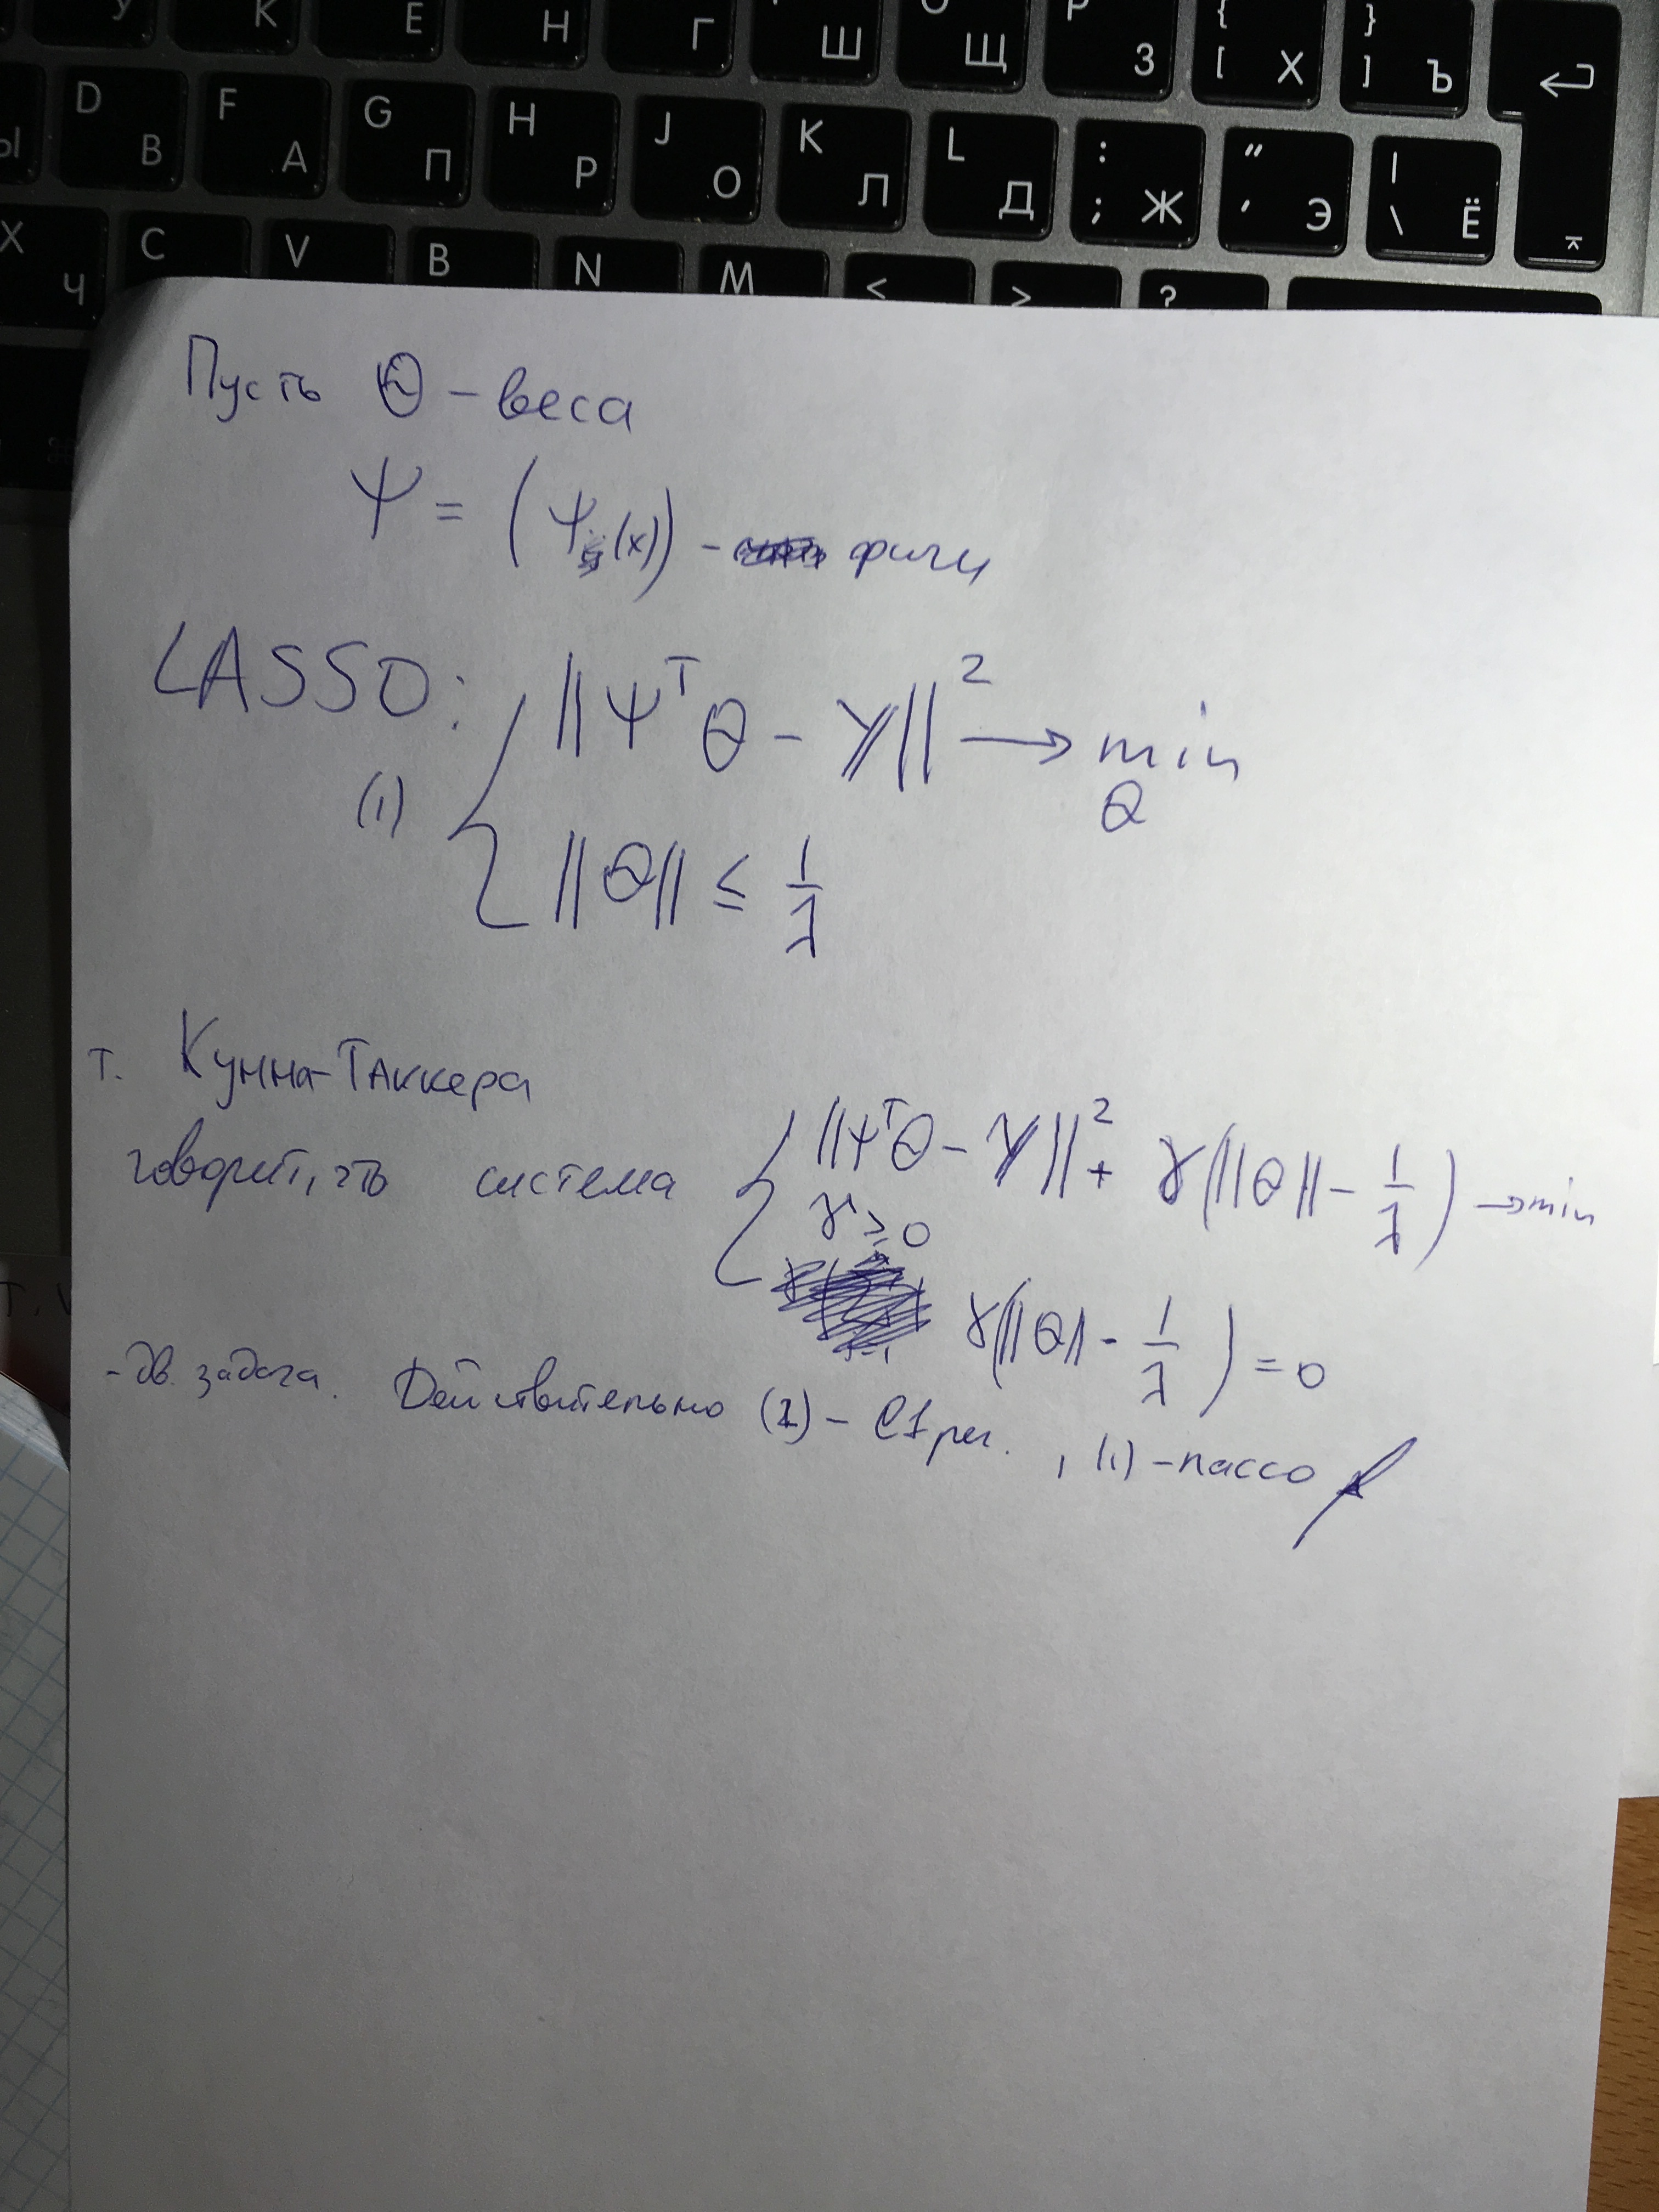 У К Е Н Г Ш О Щ Р З { [ Х } ] Ъ
Ы D В F А G П H Р J О K Л L Д : ; Ж " ' Э | \ Ё
X Ч C V B N M < > ?
Пусть Θ - веса
Ψ = (Ψ (x)) - фичи
LASSO:
‖Ψ^T Θ - Y‖² → min
Θ
(1)
‖Θ‖ ≤ 1/λ
т. Кунна-Таккера
говорит, что система
‖Ψ^T Θ - Y‖² + γ(‖Θ‖ - 1/λ) → min
γ ≥ 0
γ(‖Θ‖ - 1/λ) = 0
- дв. задача. Действительно (2) - ℓ1 рег. , (1) - лассо